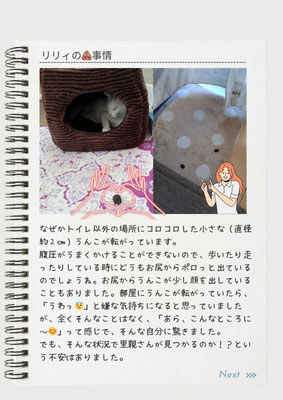 リリィの💩事情
なぜかトイレ以外の場所にコロコロした小さな（直径
約２㎝）うんこが転がっています。
腹圧がうまくかけることができないので、歩いたり走
ったりしている時にどうもお尻からポロっと出ている
のでしょうね。お尻からうんこが少し顔を出している
こともありました。部屋にうんこが転がっていたら、
「うわっ😥」と嫌な気持ちになると思っていました
が、全くそんなことはなく、「あら、こんなところに
～😊」って感じで、そんな自分に驚きました。
でも、そんな状況で里親さんが見つかるのか！？とい
う不安はありました。
Next >>>